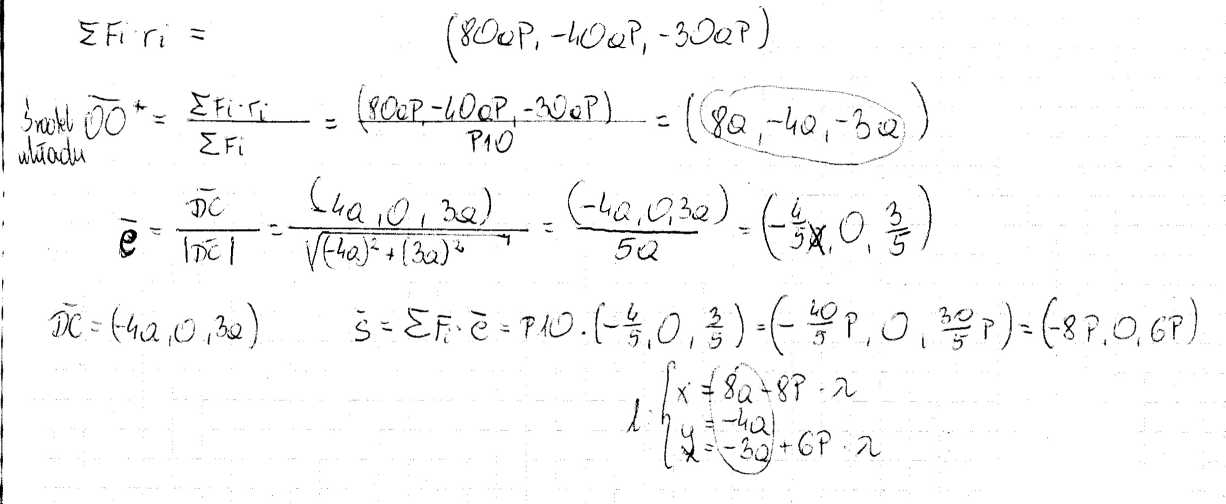 ΣFi·ri = (80aP, -40aP, -30aP)
Środek układu OO* = ΣFi·ri / ΣFi = (80aP, -40aP, -30aP) / P10 = (8a, -4a, -3a)
ē = DC / |DC| = (-4a, 0, 3a) / √((-4a)² + (3a)²) = (-4a, 0, 3a) / 5a = (-4/5, 0, 3/5)
DC = (-4a, 0, 3a) s̄ = ΣFi·ē = P10·(-4/5, 0, 3/5) = (-40/5 P, 0, 30/5 P) = (-8P, 0, 6P)
x = 8a - 8P·λ
l: y = -4a
z = -3a + 6P·λ